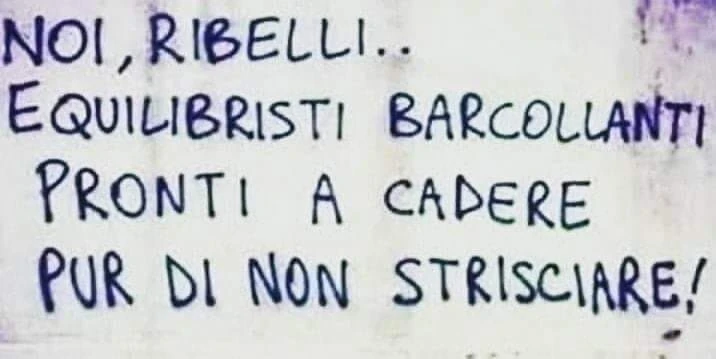 NOI, RIBELLI..
EQUILIBRISTI BARCOLLANTI
PRONTI A CADERE
PUR DI NON STRISCIARE!